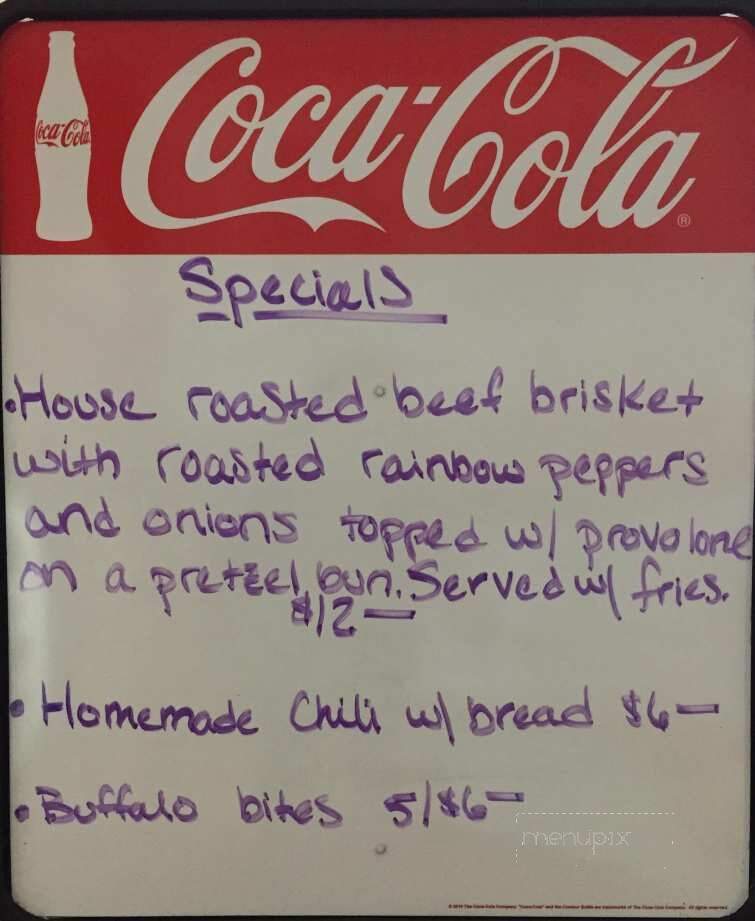 Coca-Cola
Coca-Cola ®
Specials
•House roasted beef brisket
with roasted rainbow peppers
and onions topped w/ provolone
on a pretzel bun. Served w/ fries.
$12—
• Homemade Chili w/ bread $6—
• Buffalo bites 5/$6—
menupix